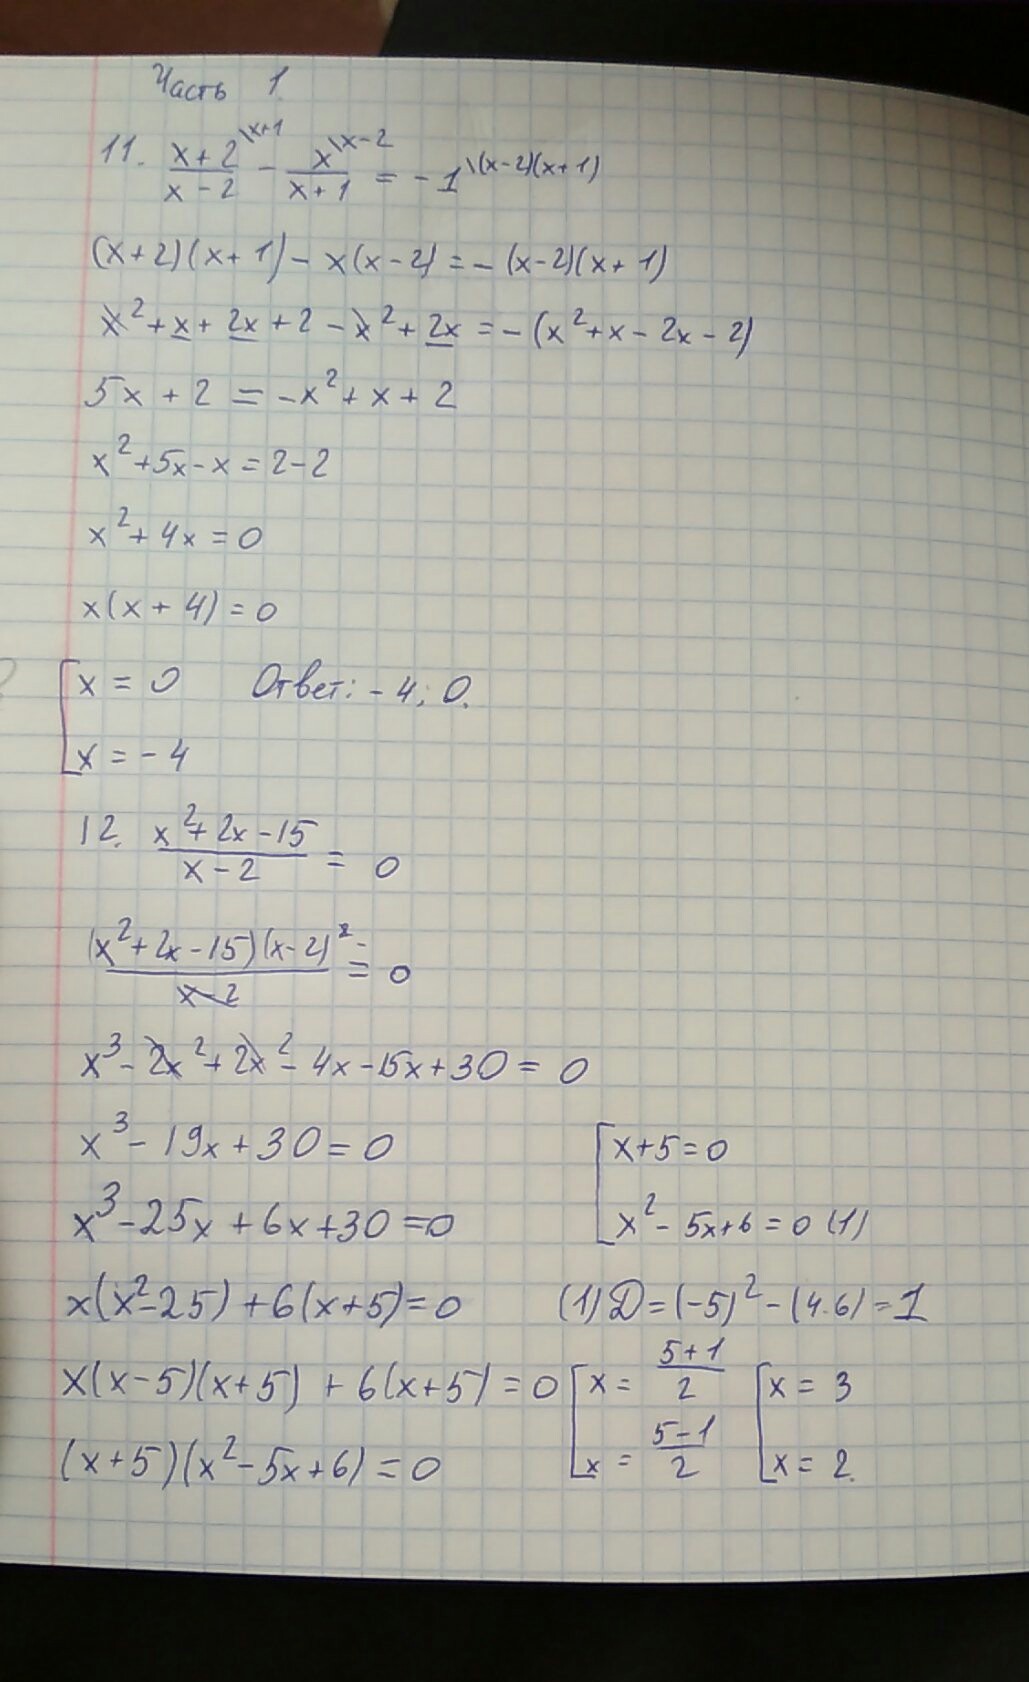 Часть 1.
11. (x+2)/(x-2) \x+1 - x/(x+1) \x-2 = -1 \(x-2)(x+1)
(x+2)(x+1)-x(x-2)=-(x-2)(x+1)
x²+x+2x+2-x²+2x=-(x²+x-2x-2)
5x+2=-x²+x+2
x²+5x-x=2-2
x²+4x=0
x(x+4)=0
[x=0 Ответ: -4; 0.
x=-4
12. (x²+2x-15)/(x-2) = 0
(x²+2x-15)(x-2)/(x-2) = 0
x³-2x²+2x²-4x-15x+30=0
x³-19x+30=0
x³-25x+6x+30=0
x(x²-25)+6(x+5)=0
x(x-5)(x+5)+6(x+5)=0
(x+5)(x²-5x+6)=0
[x+5=0
x²-5x+6=0 (1)
(1) D=(-5)²-(4·6)=1
[x=(5+1)/2 [x=3
x=(5-1)/2 x=2.